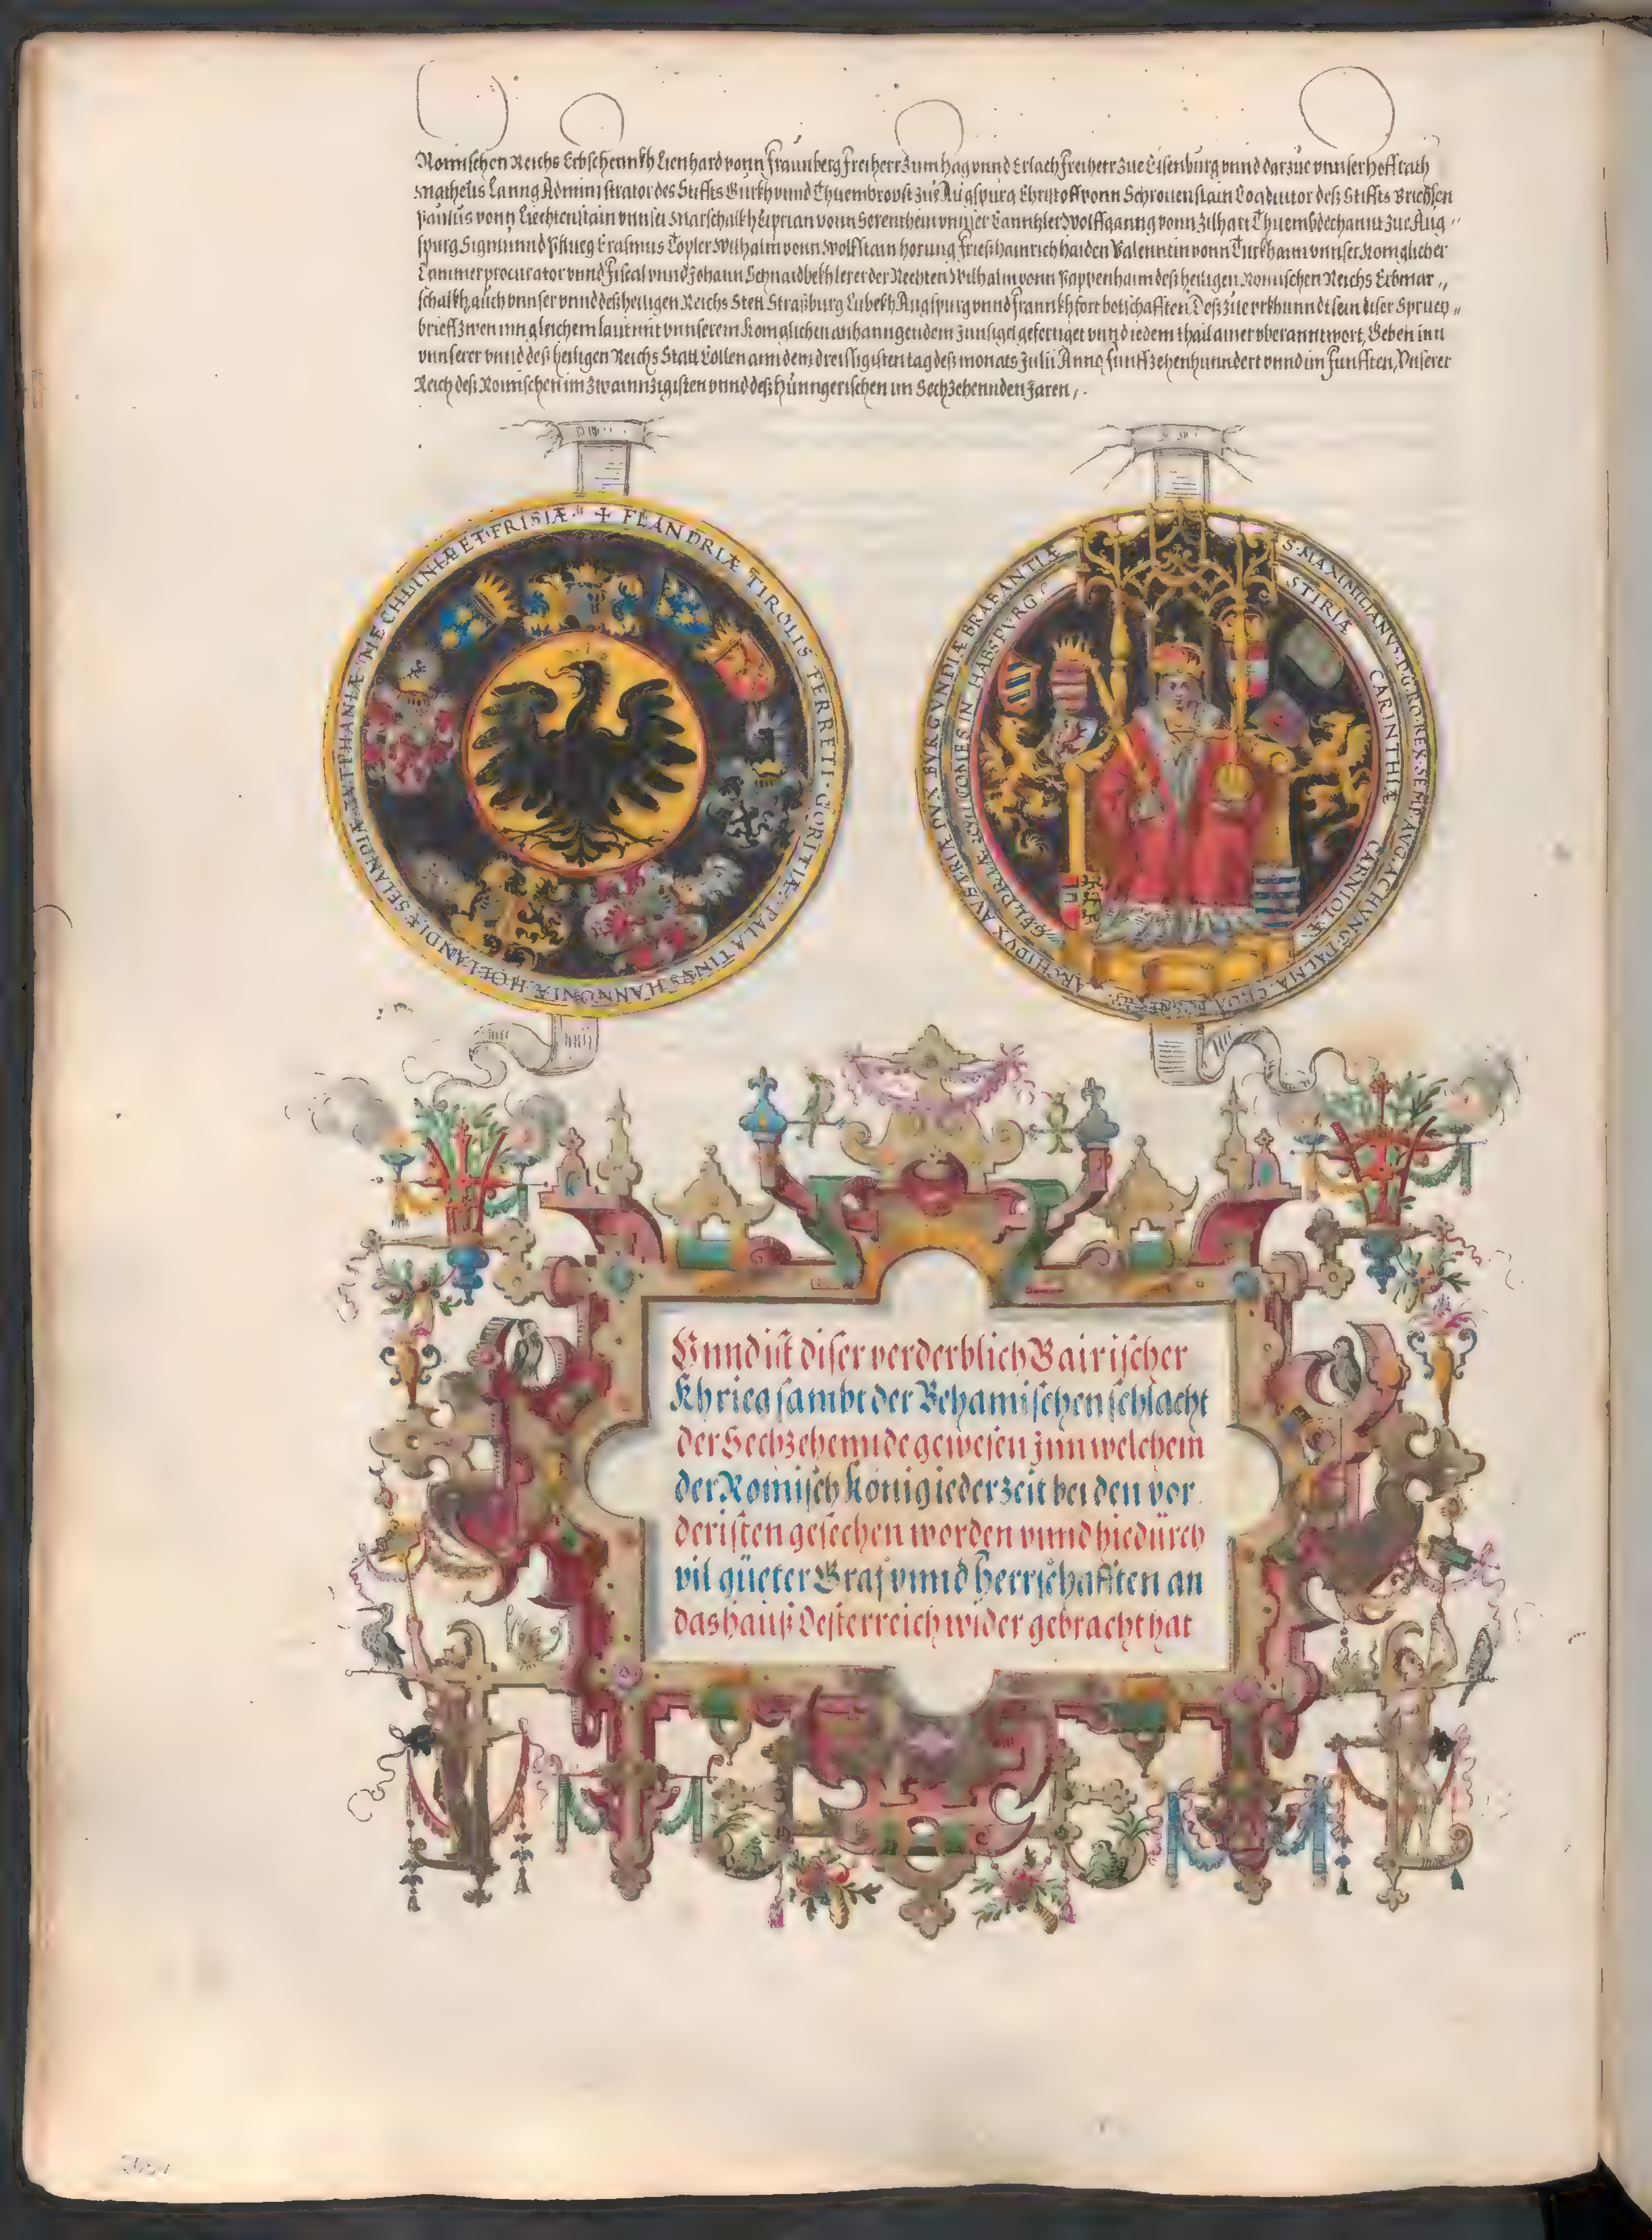 Romischen Reichs Erbschennkh Lienhard vonn Fraunberg Freiherr zum Hag vnnd Erlach Freiherr zue Eisenburg vnnd darzue vnnser Hoff rath
Matheus Lanng Administrator des Stiffts Gurkh vnnd Thuembrobst zue Augspurg Christoff vonn Schrouenstain Coadiutor deß Stiffts Brichsen
Paulus vonn Liechtenstain vnnser Marschalkh Ciprian vonn Serenthein vnnser Canntzler Wolffganng vonn Zilhart Thuembdechannt zue Aug
spurg Sigmunnd Pflueg Erasmus Topler Wilhalm vonn Wolfstain Hainrich Haiden Valenntin vonn Turkhaim vnnser Koniglicher
Cammerprocurator vnnd Fiscal vnnd Johann Schnaidbekh lerer der Rechten Wilhalm vonn Pappenhaim deß heiligen Romischen Reichs Erbmar
schalkh, auch vnnser vnnd deß heiligen Reichs Stett Straßburg Lubekh Augspurg vnnd Frannkhfort botschafften. Deß zue vrkhunndt sein diser Spruch
brieff zwen inn gleichem laut mit vnnserem Koniglichen anhanngendem Innsigel gefertiget vnnd iedem thail ainer vberanntwort, Geben inn
vnnserer vnnd deß heiligen Reichs Statt Cöllen am dem dreissigisten tag deß monats Julii Anno funffzehenhunndert vnnd im funfften, Vnserer
Reich deß Romischen im zwainnzigisten vnnd deß Hunngerischen im Sechzehennden Jaren,
+ FLANDRIÆ TIROLIS FERRETI · GORITIÆ · PALATINVS HANNONIÆ HOLLANDIÆ SELANDIÆ ZVTPHANIÆ MÆCHLINIÆ ET FRISIÆ
S · MAXIMILIANVS · D · G · RO · REX · SEMP · AVG · AC · HVNG · DALMA · CROA · ARCHIDVX AVSTRIÆ DVX BVRGVNDIÆ BRABANTIÆ
STIRIÆ CARINTHIÆ CARNIOLÆ
GELDRIÆ COMES IN HABSPVRG
Vnnd ist diser verderblich Bairischer
Khrieg sambt der Behamischen schlacht
der Sechzehennde gewesen Inn welchem
der Romisch König iederzeit bei den vor
deristen gesechen worden vnnd hiedurch
vil güeter Graf vnnd Herrschafften an
das hauß Oesterreich wider gebracht hat